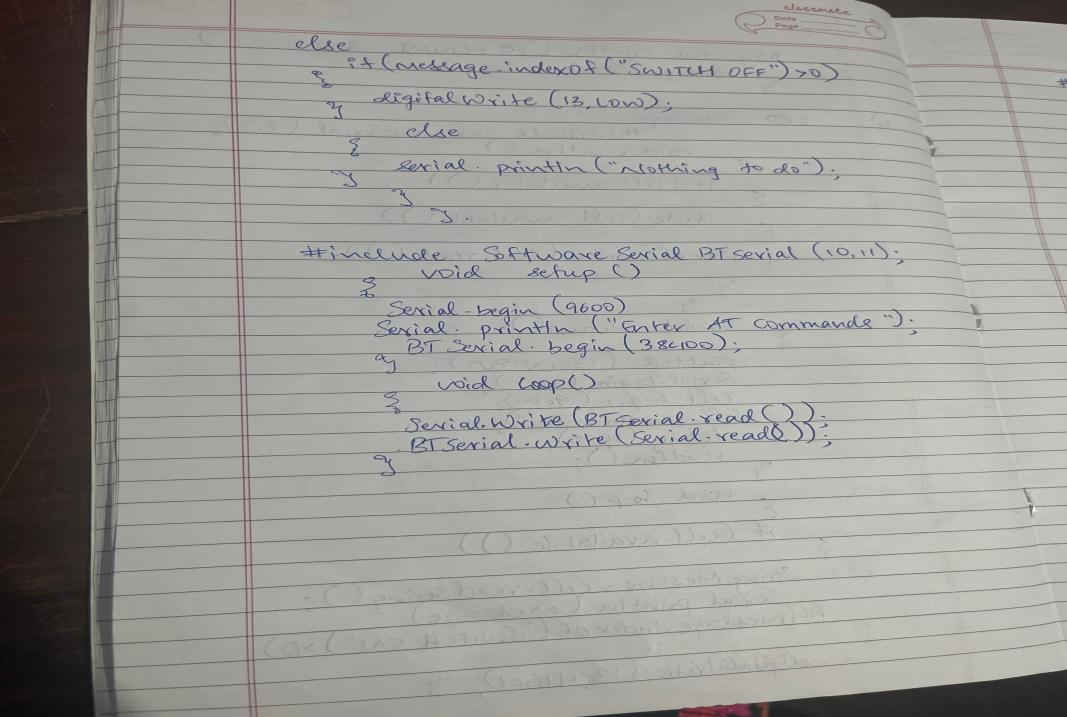 classmate
Date
Page
else
if (message.indexOf ("SWITCH OFF") >0)
{
digitalWrite (13, LOW);
}
else
{
serial. println ("Nothing to do");
}
}
}.
#include Software Serial BTserial (10,11);
void setup ()
{
Serial.begin (9600)
Serial. println ("Enter AT commands");
BT Serial. begin (38400);
}
void loop()
{
Serial.Write (BTserial.read ());
BTserial.write (serial.read());
}